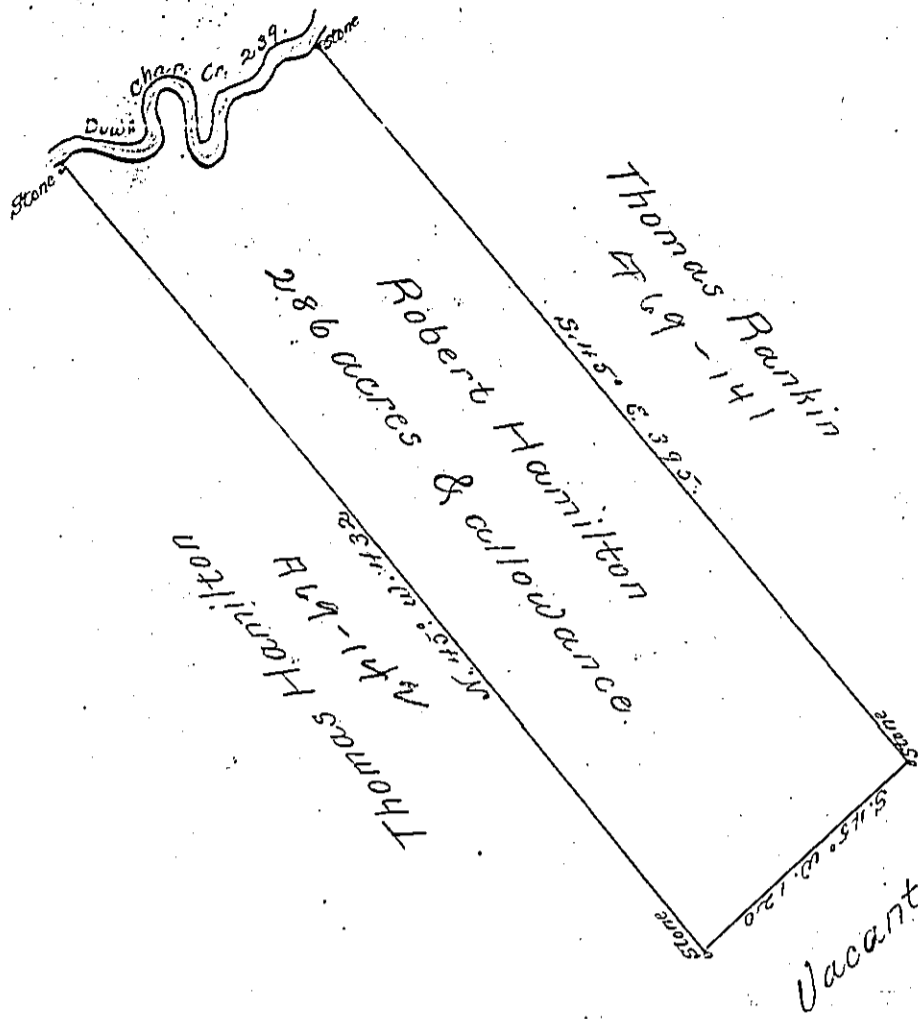 Down Char. Cr. 239.
Stone
Stone
Thomas Rankin
A 69 - 141
S. 45° E. 395.
Robert Hamilton
286 acres & allowance.
N. 45° W. 432
A 69-142
Thomas Hamilton
Stone
S. 45° W. 120
Stone
Vacant